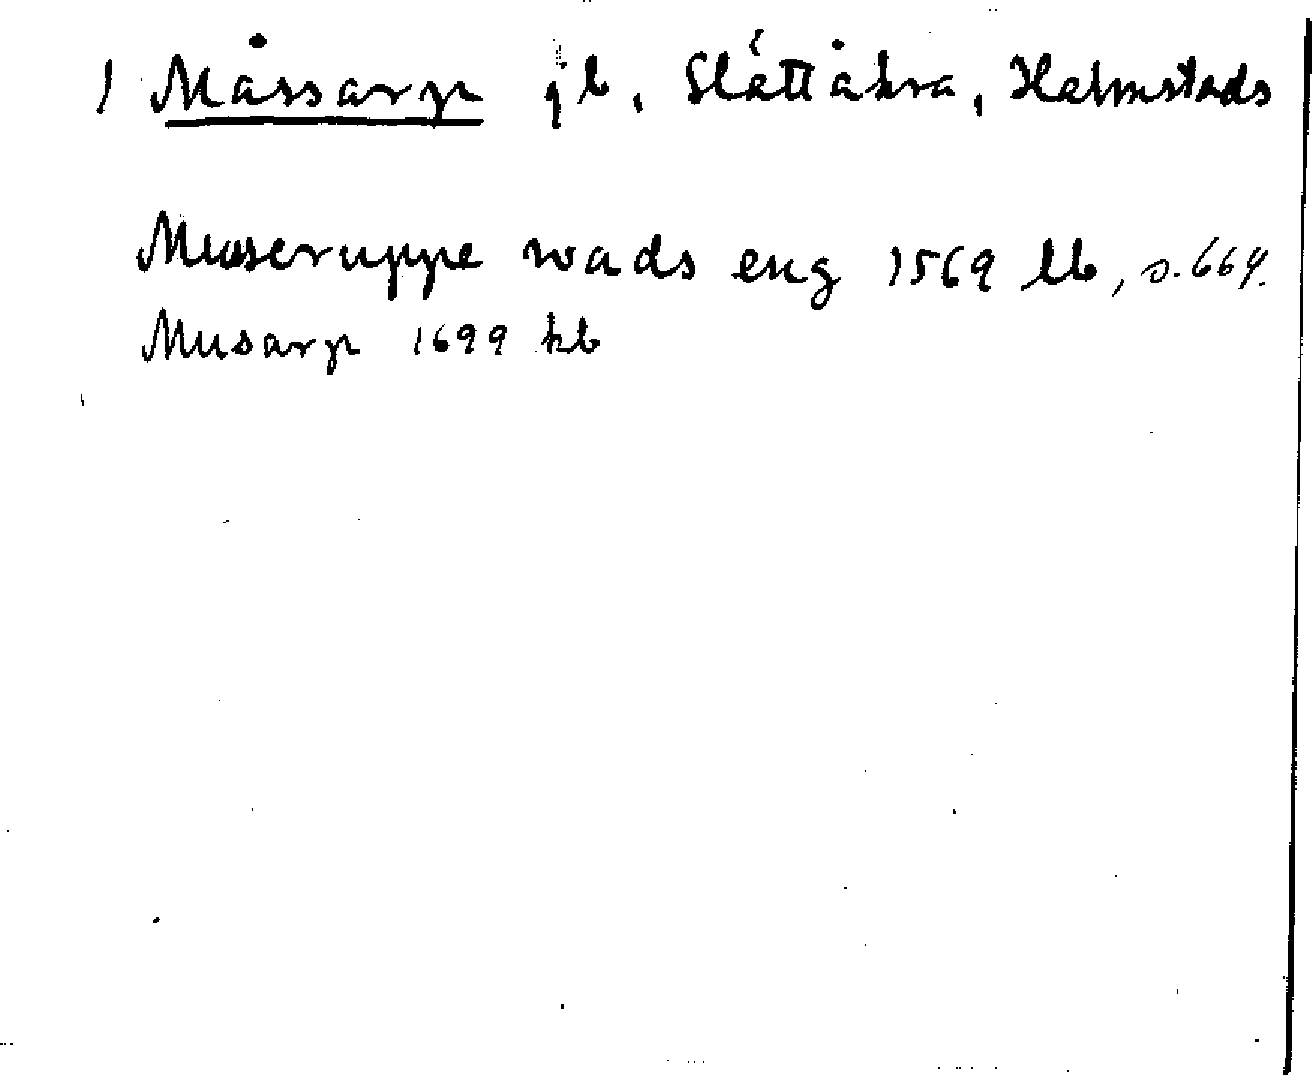 1 Måssarp jb, Slättåkra, Halmstads
Musseruppe wads eng 1569 lb, s. 664.
Musarp 1699 kb